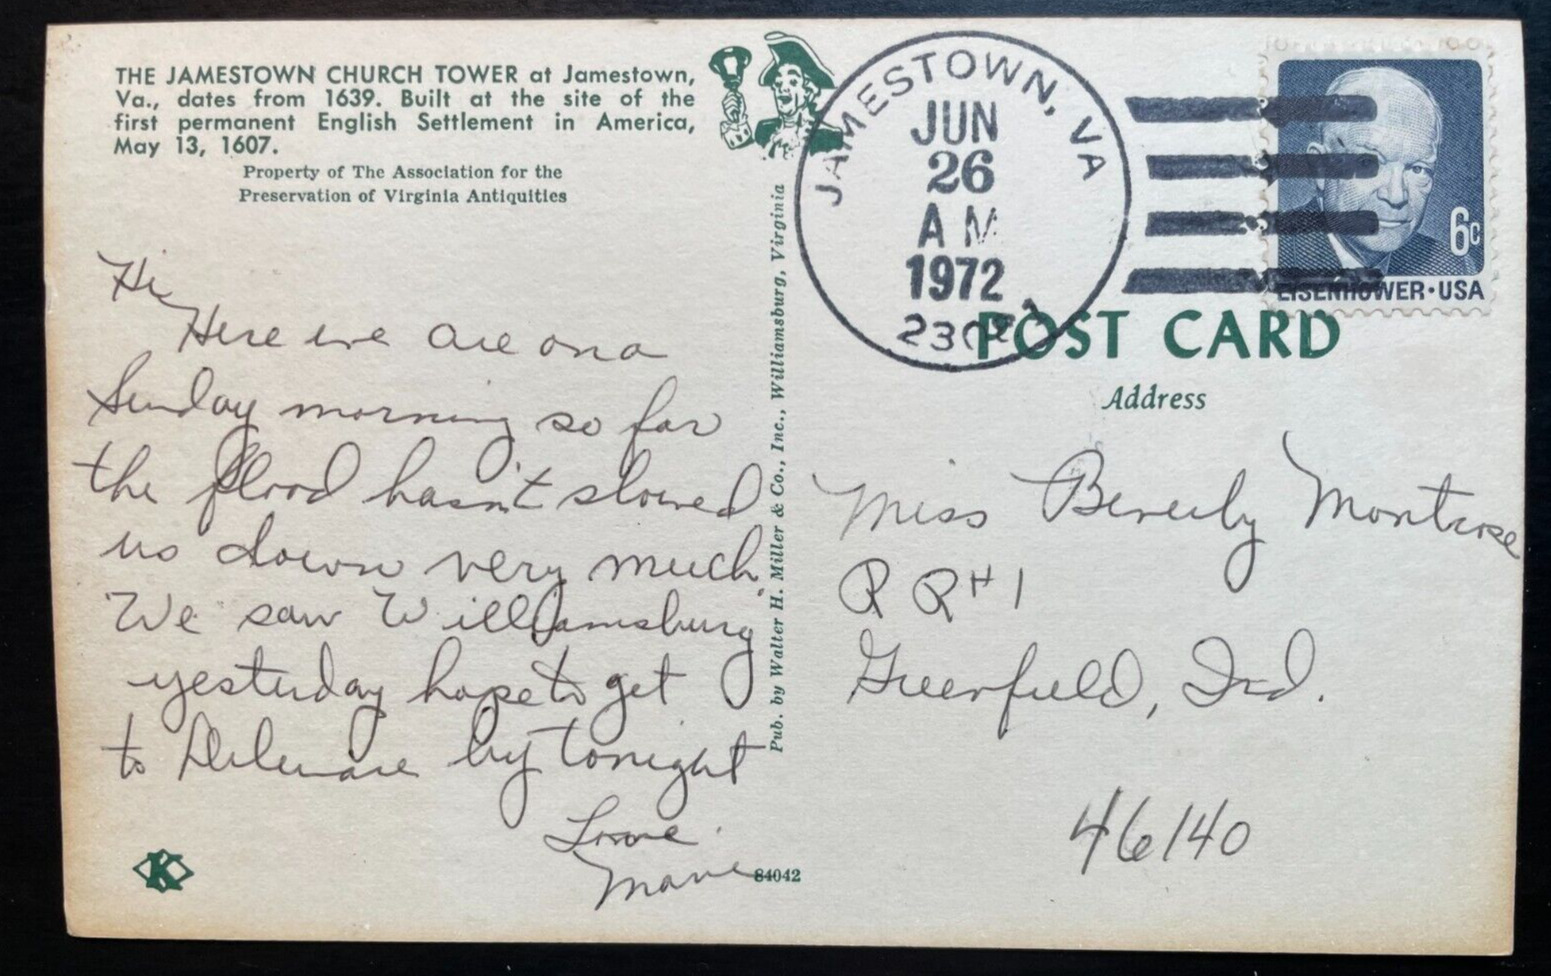 THE JAMESTOWN CHURCH TOWER at Jamestown,
Va., dates from 1639. Built at the site of the
first permanent English Settlement in America,
May 13, 1607.
Property of The Association for the
Preservation of Virginia Antiquities
Hi
Here we are on a
Sunday morning so far
the flood hasn't slowed
us down very much.
We saw Williamsburg
yesterday hope to get
to Delaware by tonight
Love
84042
K
Pub. by Walter H. Miller & Co., Inc., Williamsburg, Virginia
JAMESTOWN, VA
JUN
26
AM
1972
6c
EISENHOWER·USA
POST CARD
Address
Miss Beverly Montrose
R R #1
Greenfield, Ind.
46140